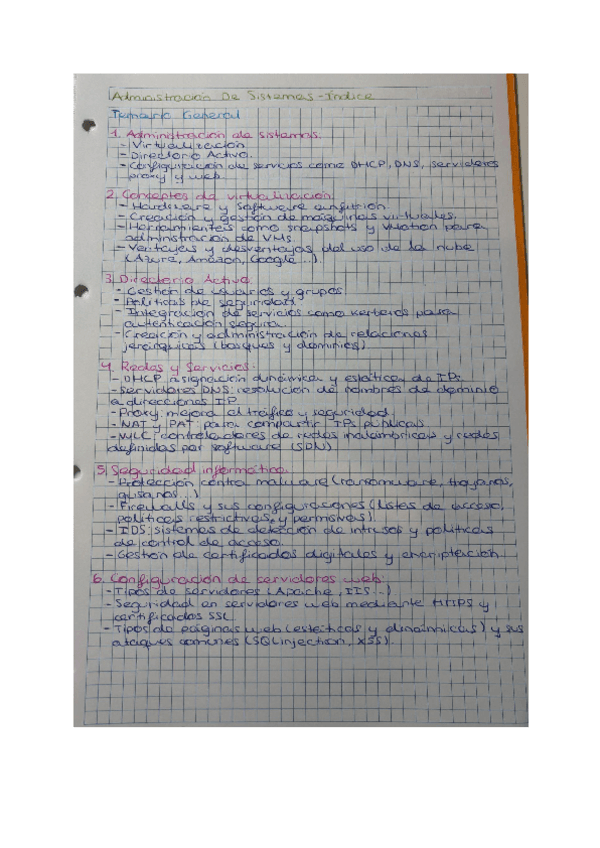 Administración De Sistemas - Índice
Temario General
1. Administración de sistemas:
- Virtualización
- Directorio Activo.
- Configuración de servicios como DHCP, DNS, servidores
proxy y web.
2. Conceptos de virtualización
- Hardware y software anfitrión.
- Creación y gestión de máquinas virtuales.
- Herramientas como snapshots y vMotion para
administración de VMs
- Ventajas y desventajas del uso de la nube
(Azure, Amazon, Google...)
3. Directorio Activo
- Gestión de usuarios y grupos
- Políticas de seguridad
- Integración de servicios como Kerberos para
autenticación segura
- Creación y administración de relaciones
jerárquicas (bosques y dominios)
4. Redes y Servicios:
- DHCP: asignación dinámica y estática de IPs
- Servidores DNS: resolución de nombres de dominio
a direcciones IP
- Proxy: mejora el tráfico y seguridad
- NAT y PAT: para compartir IPs públicas
- WLC: controladores de redes inalámbricas y redes
definidas por software (SDN)
5. Seguridad informática.
- Protección contra malware (ransomware, troyanos,
gusanos...)
- Firewalls y sus configuraciones (listas de acceso,
políticas restrictivas y permisivas)
- IDS: sistemas de detección de intrusos y políticas
de control de acceso.
- Gestión de certificados digitales y encriptación
6. Configuración de servidores web:
- Tipos de servidores (Apache, IIS...)
- Seguridad en servidores web mediante HTTPS y
certificados SSL
- Tipos de páginas web (estáticas y dinámicas) y sus
ataques comunes (SQL injection, XSS).